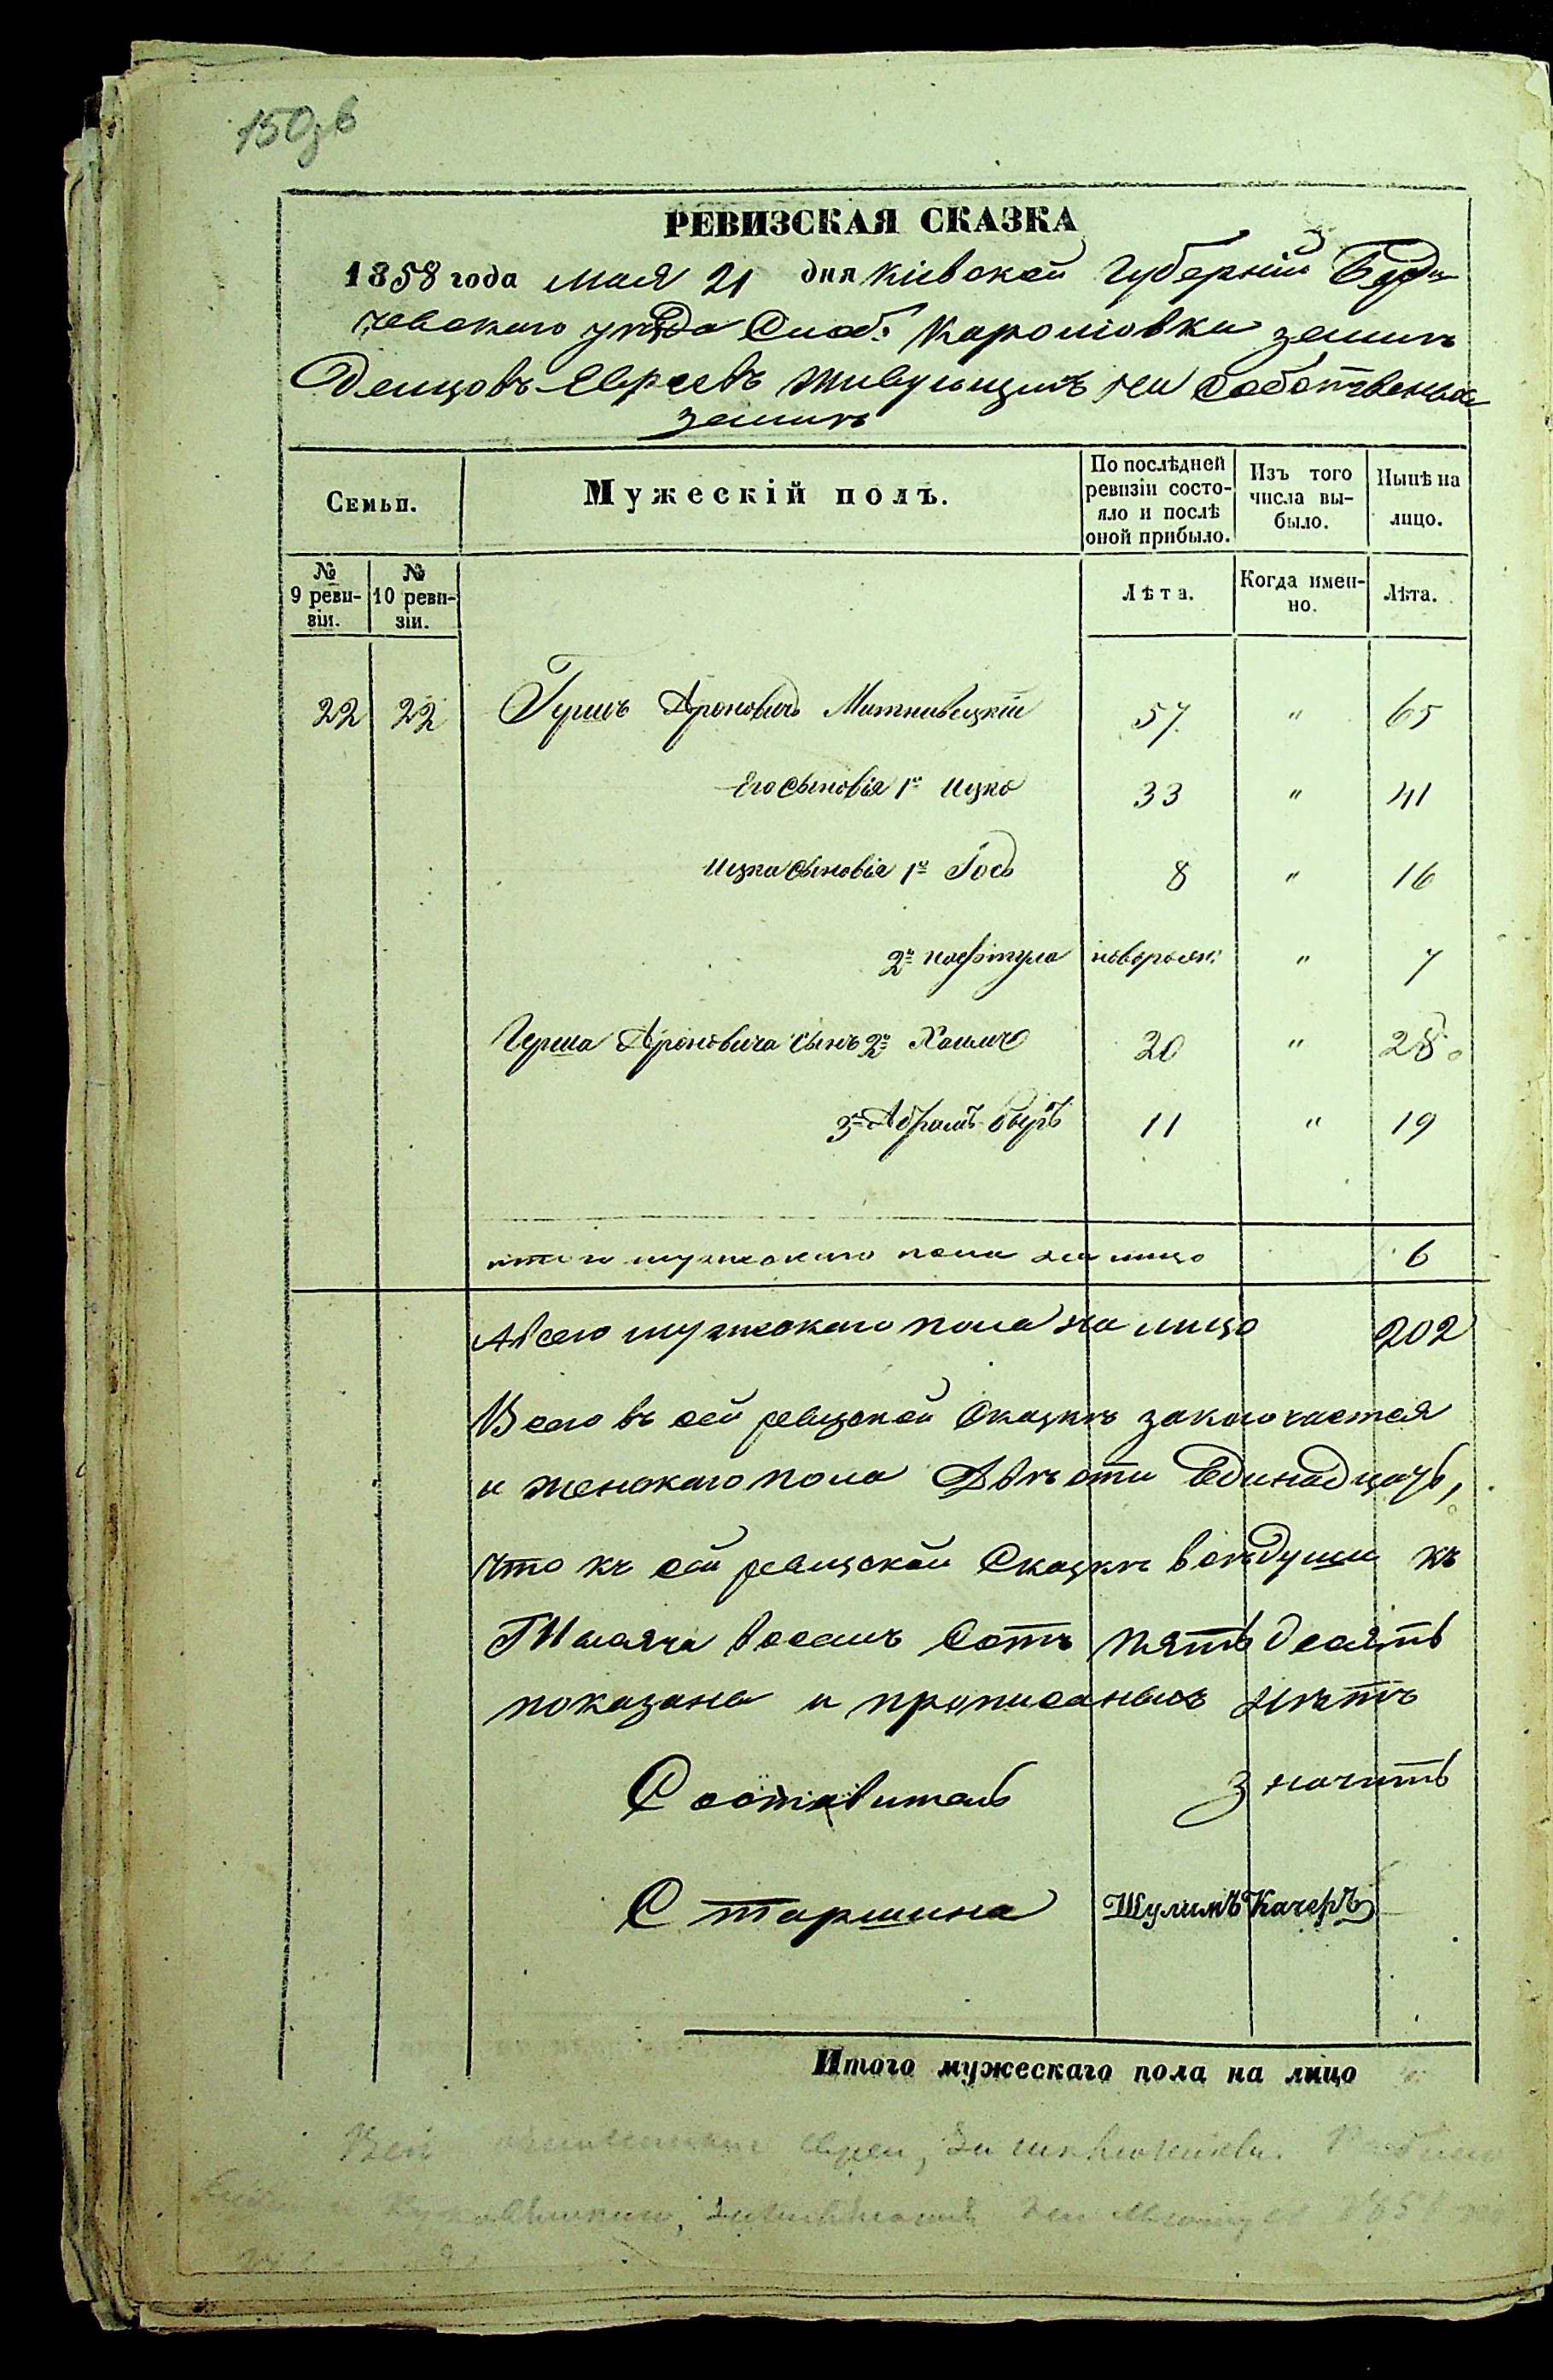 150зв
РЕВИЗСКАЯ СКАЗКА
1858 года мая 21 дня Кіевской Губерніи Берди
чевскаго уѣзда Слоб: Каролювки земле
дельцовъ Евреевъ живущихъ на собственной
землѣ
Семьи.
Мужескій полъ.
По послѣдней ревизіи состо-
яло и послѣ
оной прибыло.
Изъ того
числа вы-
было.
Нынѣ на
лицо.
№
9 реви-
зіи.
№
10 реви-
зіи.
Лѣта.
Когда имен-
но.
Лѣта.
22 22 Гершъ Ароновичъ Митнивецкій 57 " 65
Его сыновія 1й Ицко 33 " 41
Ицка сыновія 1й Іось 8 " 16
2й Нафтула новорожд: " 7
Герша Ароновича сынъ 2й Хаимъ 20 " 28
3й Абрамъ Беръ 11 " 19
итого мужескаго пола на лицо 6
А всего мужескаго пола на лицо 202
Всего въ сей ревизской Сказкѣ заключается
и женскаго пола Двѣсти Единадцать,
что къ сей ревизской Сказкѣ всѣ души къ
Тисяча восемъ Сотъ пятьдесятъ
показаны и прописаныхъ нѣтъ
Составитель значитъ
Старшина Шулимъ Качеръ
Итого мужескаго пола на лицо